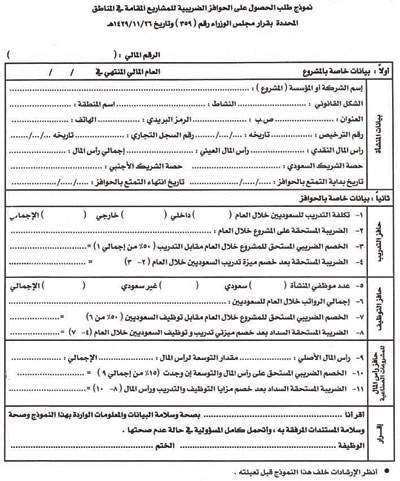 نموذج طلب الحصول على الحوافز الضريبية للمشاريع المقامة في المناطق
المحددة بقرار مجلس الوزراء رقم (٣٥٩) وتاريخ ١٤٢٩/١١/٢٦هـ
الرقم المالي : ( )
أولاً : بيانات خاصة بالمشروع
العام المالي المنتهي في / /
بيانات المنشأة
إسم الشركة أو المؤسسة ( المشروع ) :
الشكل القانوني : النشاط : اسم المنطقة :
العنوان : ص.ب : الرمز البريدي : الهاتف :
رقم الترخيص : تاريخه : .../.../... رقم السجل التجاري : تاريخه .../.../...
رأس المال النقدي : رأس المال العيني : إجمالي رأس المال :
حصة الشريك السعودي : حصة الشريك الأجنبي :
تاريخ بداية التمتع بالحوافز : .../.../... تاريخ انتهاء التمتع بالحوافز : .../.../...
ثانياً : بيانات خاصة بالحوافز
حافز التدريب
١- تكلفة التدريب للسعوديين خلال العام ( ) داخلي ( ) خارجي ( ) الإجمالي
٢- الضريبة المستحقة على المشروع خلال العام :
٣- الخصم الضريبي المستحق للمشروع خلال العام مقابل التدريب (٥٠٪ من إجمالي ١) =
٤- الضريبة المستحقة بعد خصم ميزة تدريب السعوديين خلال العام (٢- ٣) =
حافز التوظيف
٥- عدد موظفي المنشأة ( ) سعودي ( ) غير سعودي ( ) الإجمالي
٦- إجمالي الرواتب خلال العام للسعوديين :
٧- الخصم الضريبي المستحق للمشروع خلال العام مقابل توظيف السعوديين (٥٠٪ من ٦) =
٨- الضريبة المستحقة السداد بعد خصم ميزتي تدريب و توظيف السعوديين خلال العام (٤- ٧) =
حافز رأس المال للمشروعات الصناعية
٩- رأس المال الأصلي : مقدار التوسعة لرأس المال : الإجمالي :
١٠- الخصم الضريبي المستحق على رأس المال والتوسعة إن وجدت (١٥٪ من إجمالي ٩) =
١١- الضريبة المستحقة السداد بعد خصم مزايا التوظيف والتدريب ورأس المال (٨- ١٠) =
إقرار
اقر أنا بصحة وسلامة البيانات والمعلومات الواردة بهذا النموذج وصحة
وسلامة المستندات المرفقة به ، وأتحمل كامل المسؤولية في حالة عدم صحتها .
الوظيفة الختم
• أنظر الإرشادات خلف هذا النموذج قبل تعبئته .